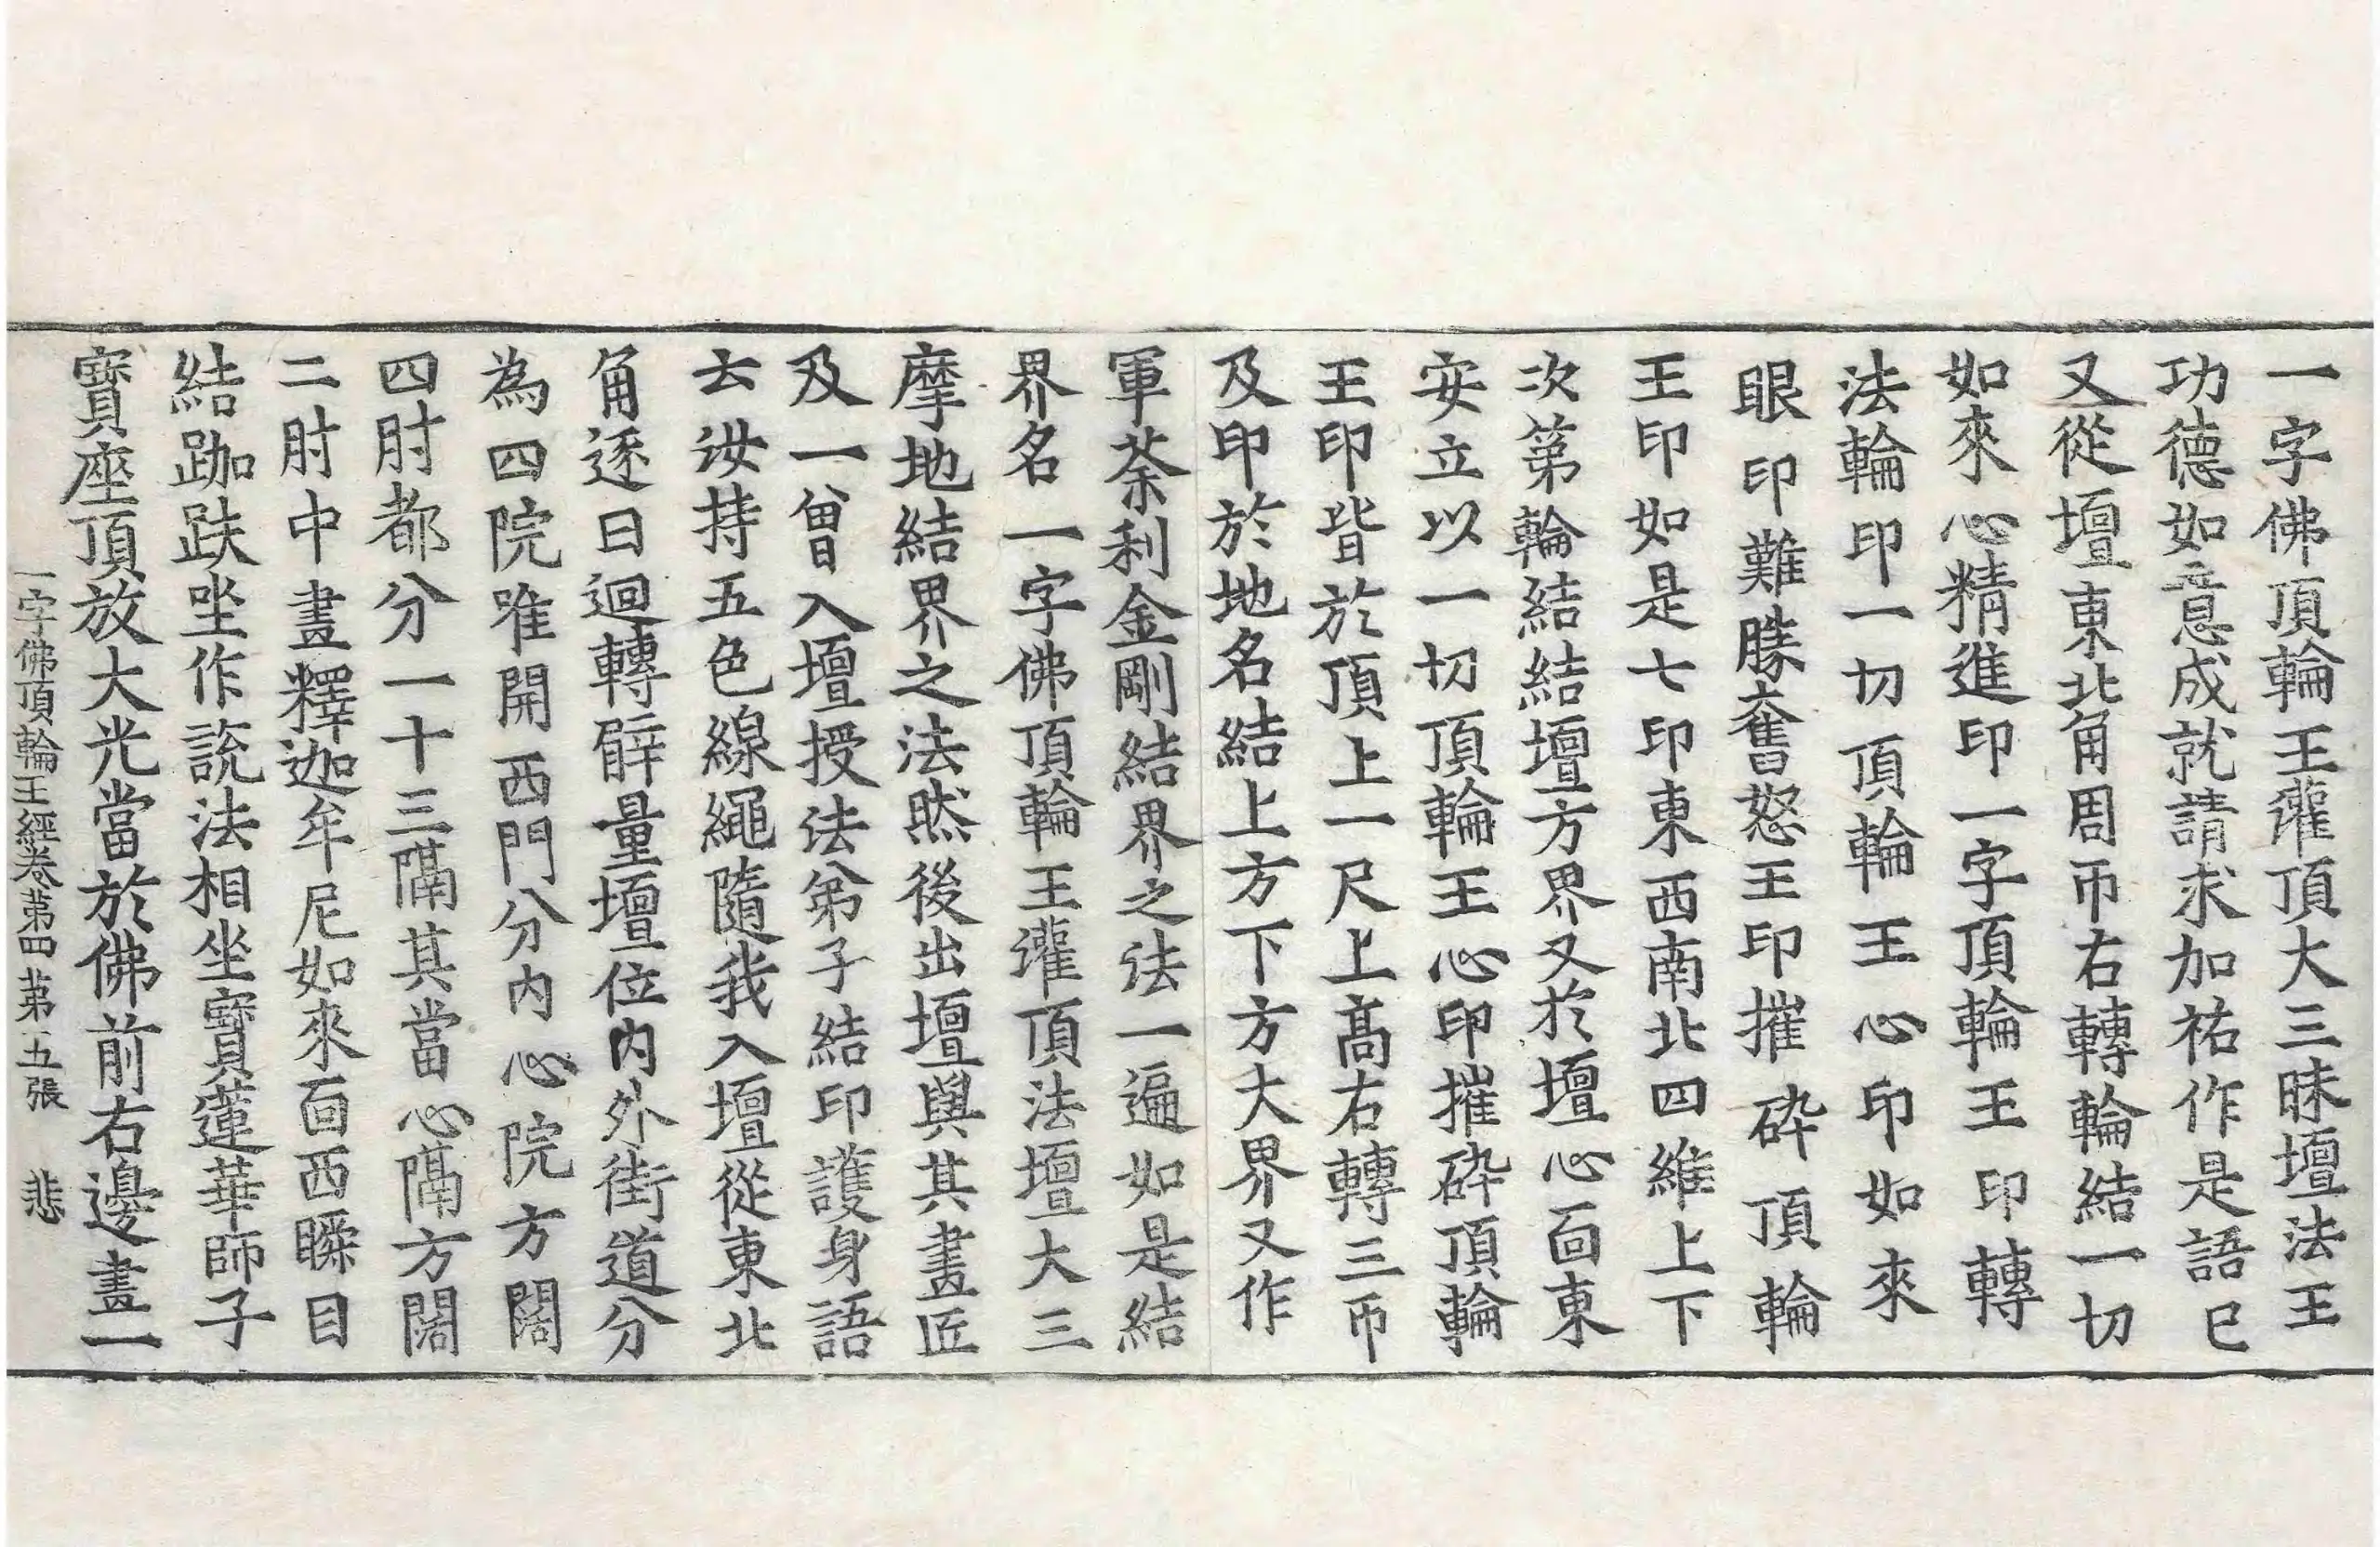 一字佛頂輪王灌頂大三昧壇法王
功德如意成就請求加祐作是語已
又從壇東北角周帀右轉輪結一切
如來心精進印一字頂輪王印轉
法輪印一切頂輪王心印如來
眼印難勝奮怒王印摧碎頂輪
王印如是七印東西南北四維上下
次第輪結結壇方界又於壇心面東
安立以一切頂輪王心印摧碎頂輪
王印皆於頂上一尺上高右轉三帀
及印於地名結上方下方大界又作
軍荼利金剛結界之法一遍如是結
界名一字佛頂輪王灌頂法壇大三
摩地結界之法然後出壇與其畫匠
及一曾入壇授法弟子結印護身語
去汝持五色線繩隨我入壇從東北
角逐日迴轉辟量壇位內外街道分
為四院唯開西門分內心院方闊
四肘都分一十三隔其當心隔方闊
二肘中畫釋迦牟尼如來面西瞬目
結跏趺坐作說法相坐寶蓮華師子
寶座頂放大光當於佛前右邊畫一
一字佛頂輪王經卷第四 第十五張 悲